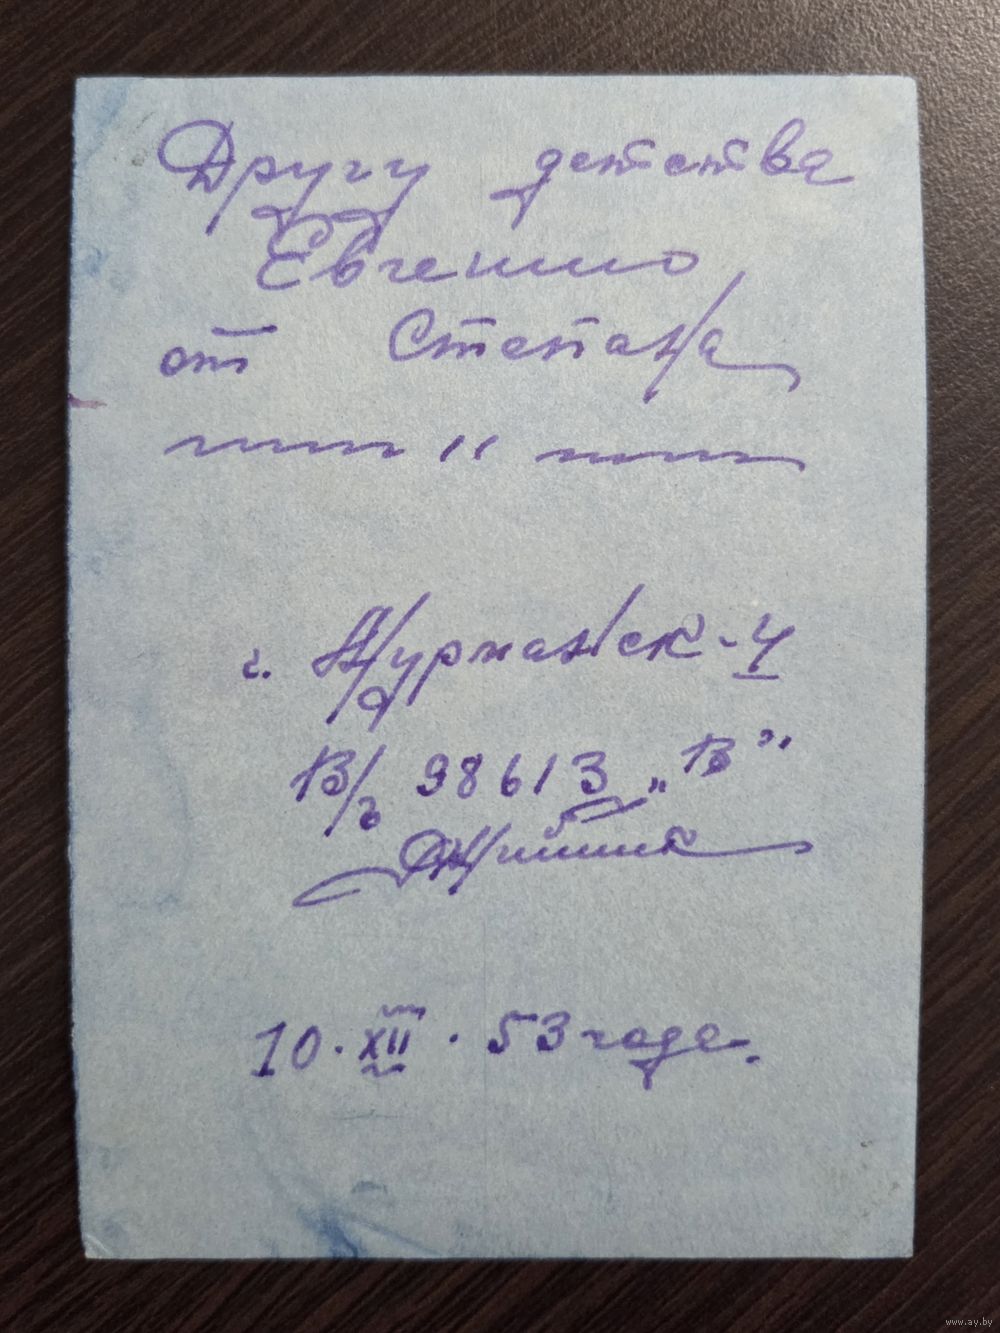 Другу детства
Евгению
от Степана
г. Мурманск-4
В/ч 98613 „В"
10.XII.53 года.
www.ay.by